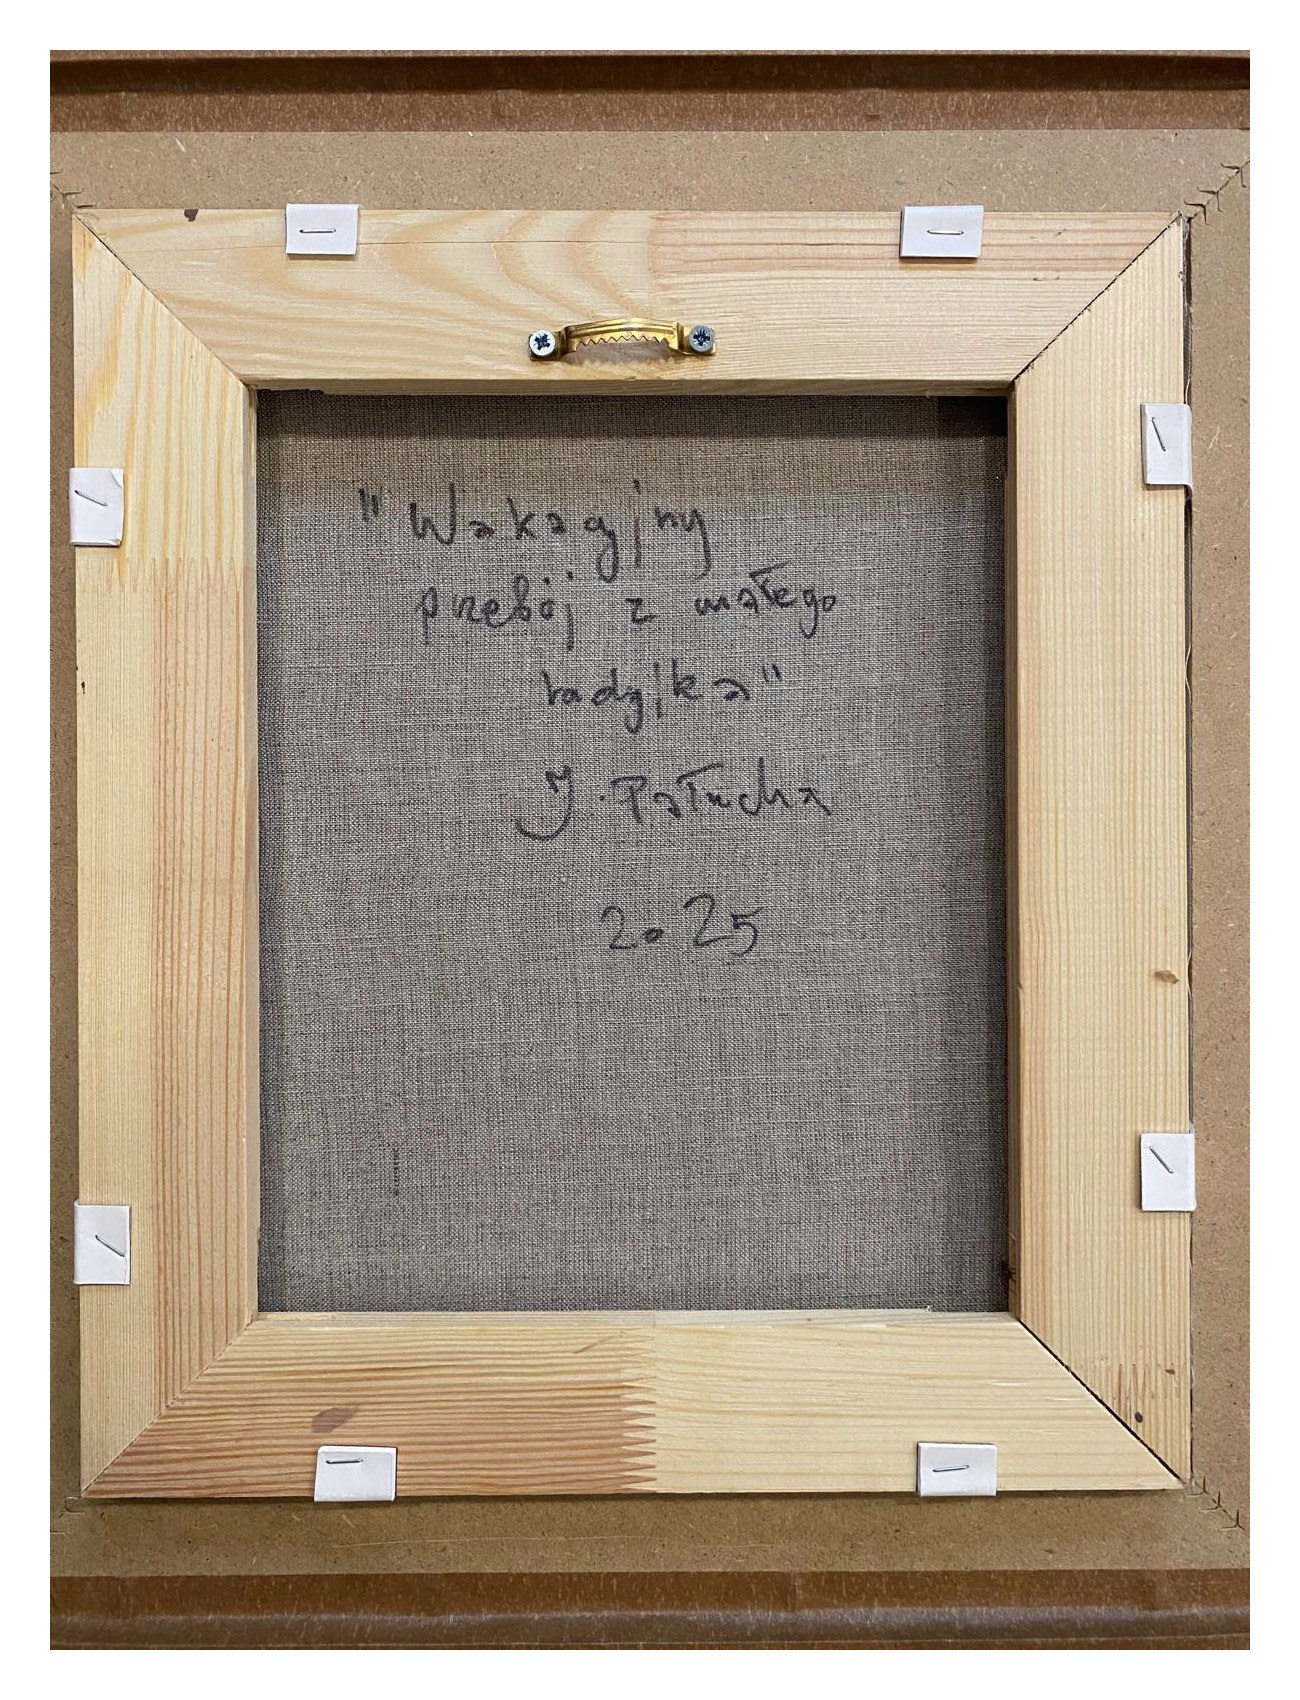 "Wakacyjny
przebój z małego
radyjka"
J. Pałucha
2025